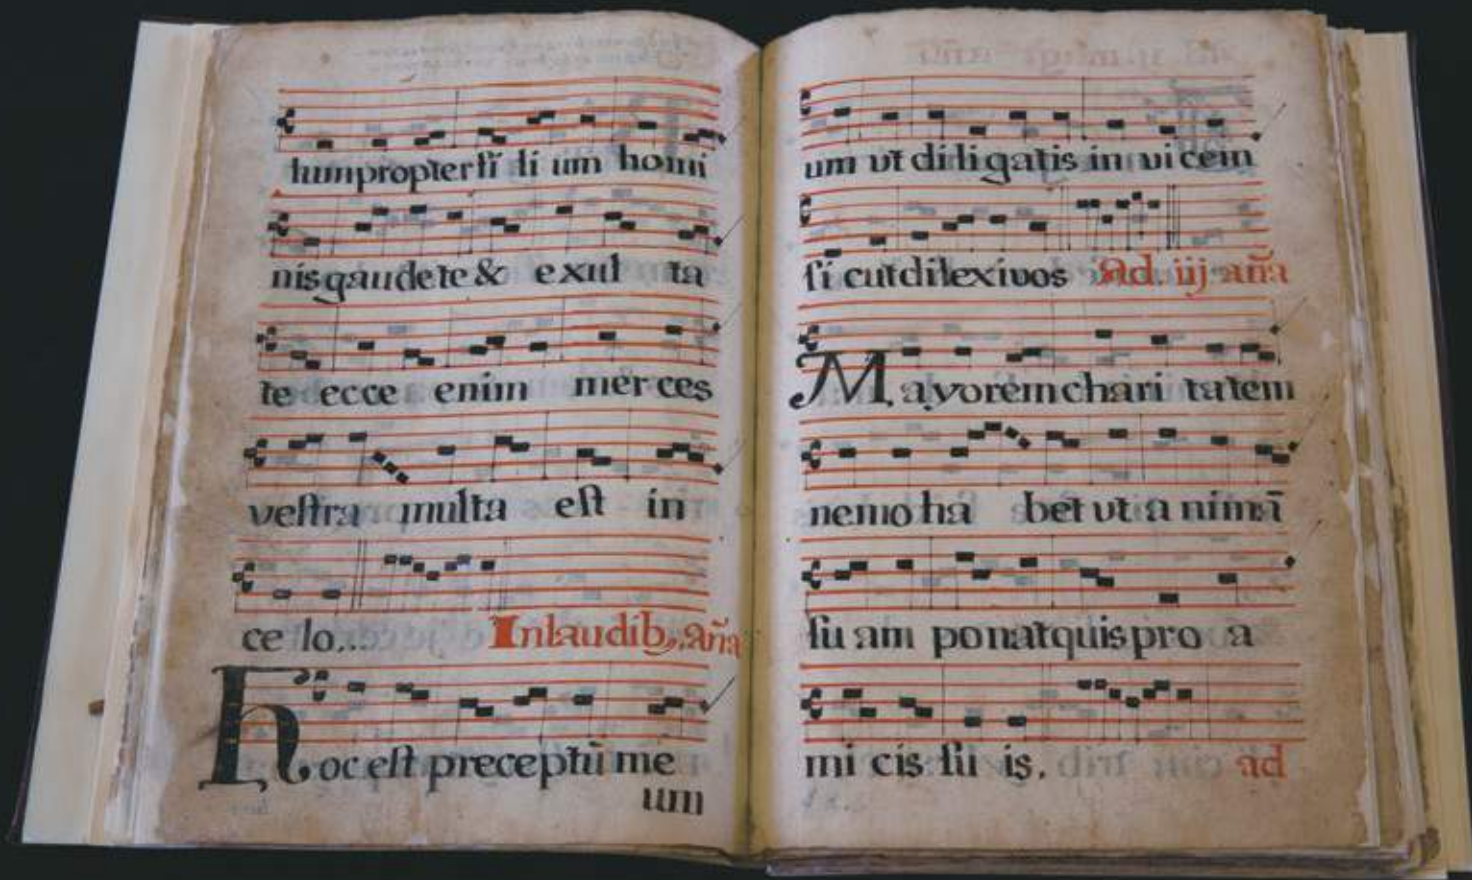 tum propter fi li um homi
nis gaudete & exul ta
te ecce enim merces
vestra multa est in
ce lo...
In laudib, aña
Hoc est preceptū me
um
um vt diligatis in vicem
si cut dilexi vos Ad iij aña
Mayorem chari tatem
nemo ha bet vt a nimā
su am ponat quis pro a
mi cis su is. ad